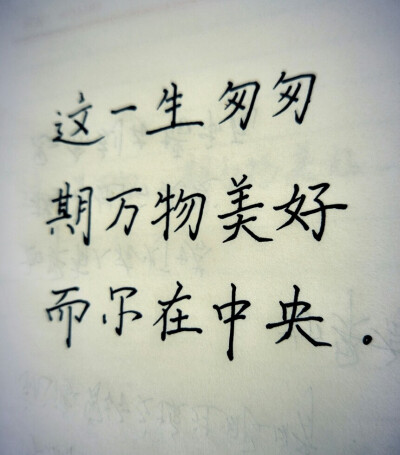 这一生匆匆
期万物美好
而尔在中央。